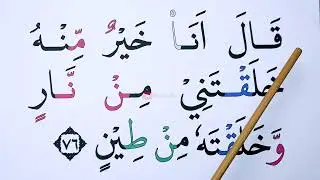 قَالَ اَنَا۠ خَيْرٌ مِّنْهُ
خَلَقْتَنِيْ مِنْ نَّارٍ
وَّخَلَقْتَهٗ مِنْ طِيْنٍ ﴿٧٦﴾